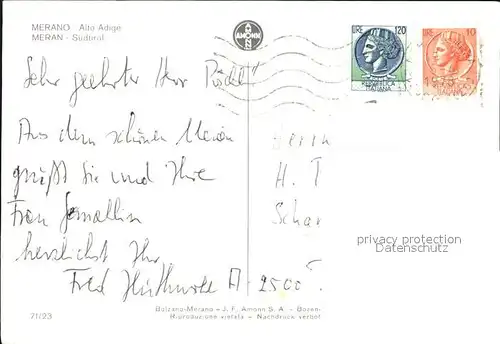 MERANO Alto Adige
MERAN - Südtirol
AMONN
LIRE 120
REPUBBLICA ITALIANA
LIRE 10
REPUBBLICA ITALIANA
Sehr geehrter Herr
Aus dem schönen Meran
grüßt Sie und Ihre
Frau Gemahlin
herzlichst Ihr
Fred
H. T
Schar
privacy protection
Datenschutz
71/23
Bolzano-Merano - J. F. Amonn S. A. - Bozen-
Riproduzione vietata - Nachdruck verbot